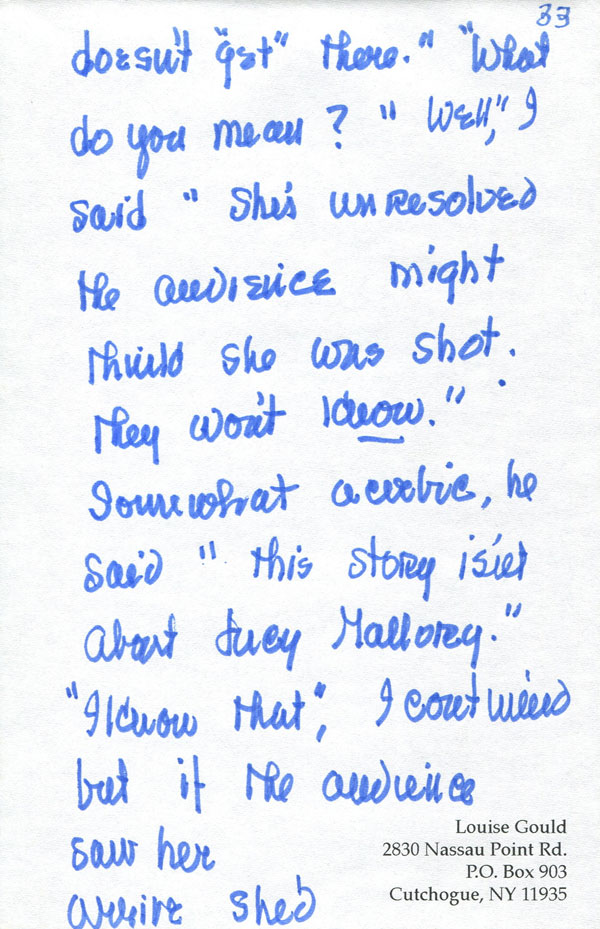 33
doesn't "get" there." "What
do you mean?" "Well," I
said "She's unresolved
the audience might
think she was shot.
They won't know."
Somewhat acerbic, he
said "this story isn't
about Lucy Mallory."
"I know that", I continued
but if the audience
saw her
arrive she'd
Louise Gould
2830 Nassau Point Rd.
P.O. Box 903
Cutchogue, NY 11935